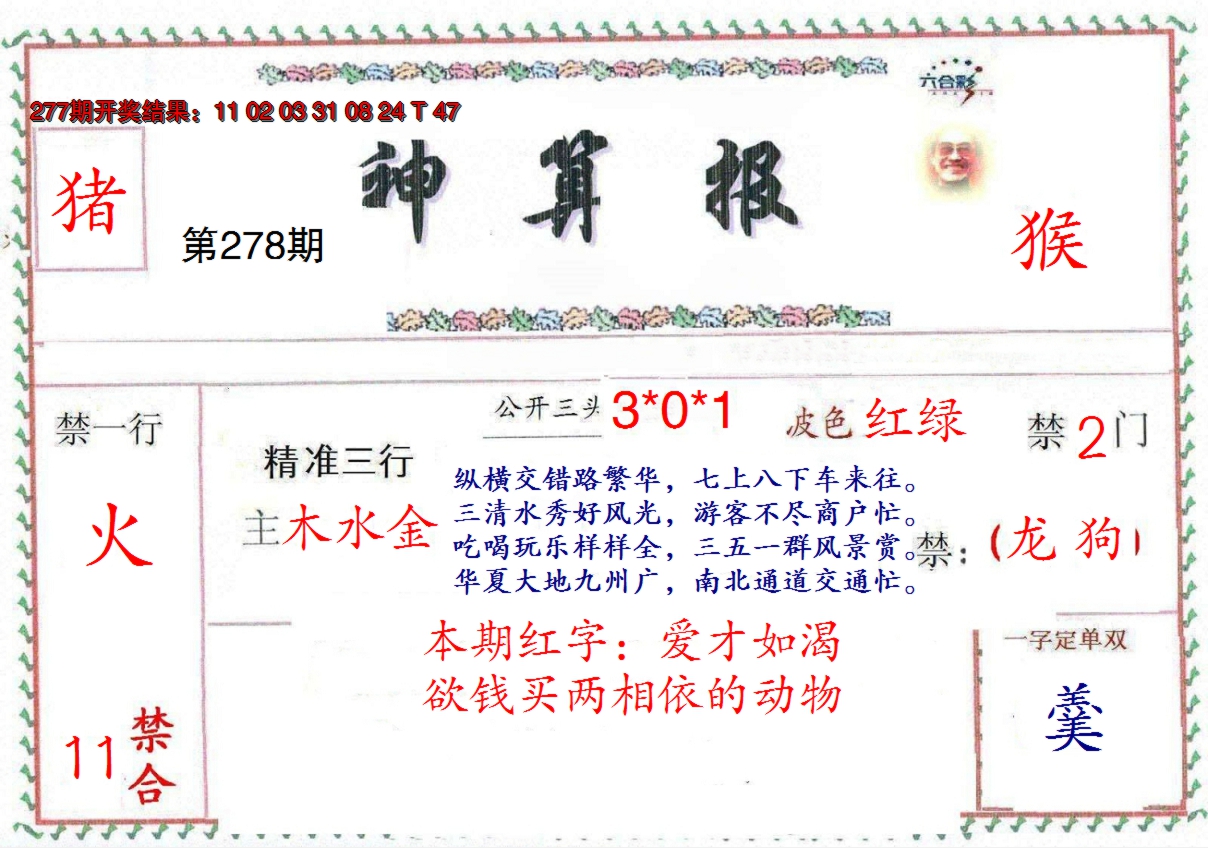 六合彩
277期开奖结果：11 02 03 31 08 24 T 47
猪
第278期
神算报
猴
禁一行
火
11
禁合
公开三头 3*0*1
波色 红绿
禁2门
精准三行
主木水金
纵横交错路繁华，七上八下车来往。
三清水秀好风光，游客不尽商户忙。
吃喝玩乐样样全，三五一群风景赏。
华夏大地九州广，南北通道交通忙。
禁：（龙 狗）
本期红字：爱才如渴
欲钱买两相依的动物
一字定单双
羹